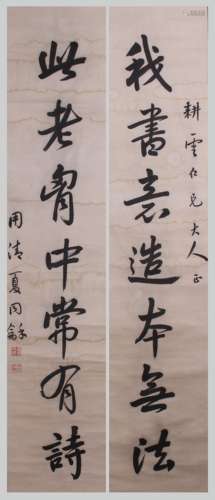 耕雲仁兄大人正
我書意造本無法
此老胷中常有詩
用清夏同龢